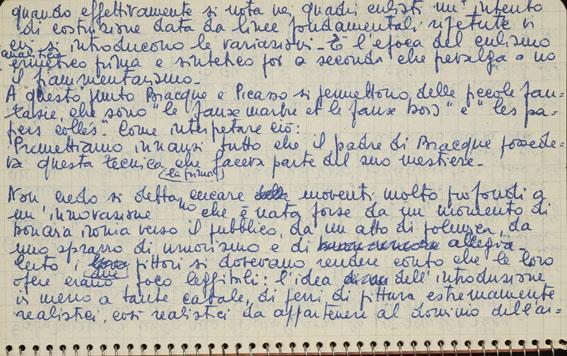 quando effettivamente si nota nei quadri cubisti un intento
di costruzione data da linee fondamentali ripetute in
cui si introducono le variazioni - È l'epoca del cubismo
analitico
ermetico prima e sintetico poi a seconda che prevalga o no
il frammentarismo -
A questo punto Bracque e Picasso si permettono delle piccole fan-
tasie che sono "le faux marbre et le faux bois" e "les pa-
piers collés - Come interpetrare ciò:
Premettiamo innanzi tutto che il padre di Bracque possede-
va questa tecnica che faceva parte del suo mestiere -
(la prima)
Non credo si debba cercare moventi molto profondi a
un'innovazione che è nata forse da un momento di
bonaria ironia verso il pubblico, da un atto di polemica, da
uno sprazzo di umorismo e di allegria -
Certo, i due pittori si dovevano rendere conto che le loro
opere erano poco leggibili: l'idea dell'introduzione
in meno a tante cabale, di pezzi di pittura estremamente
realistici, così realistici da appartenere al dominio dell'ar-